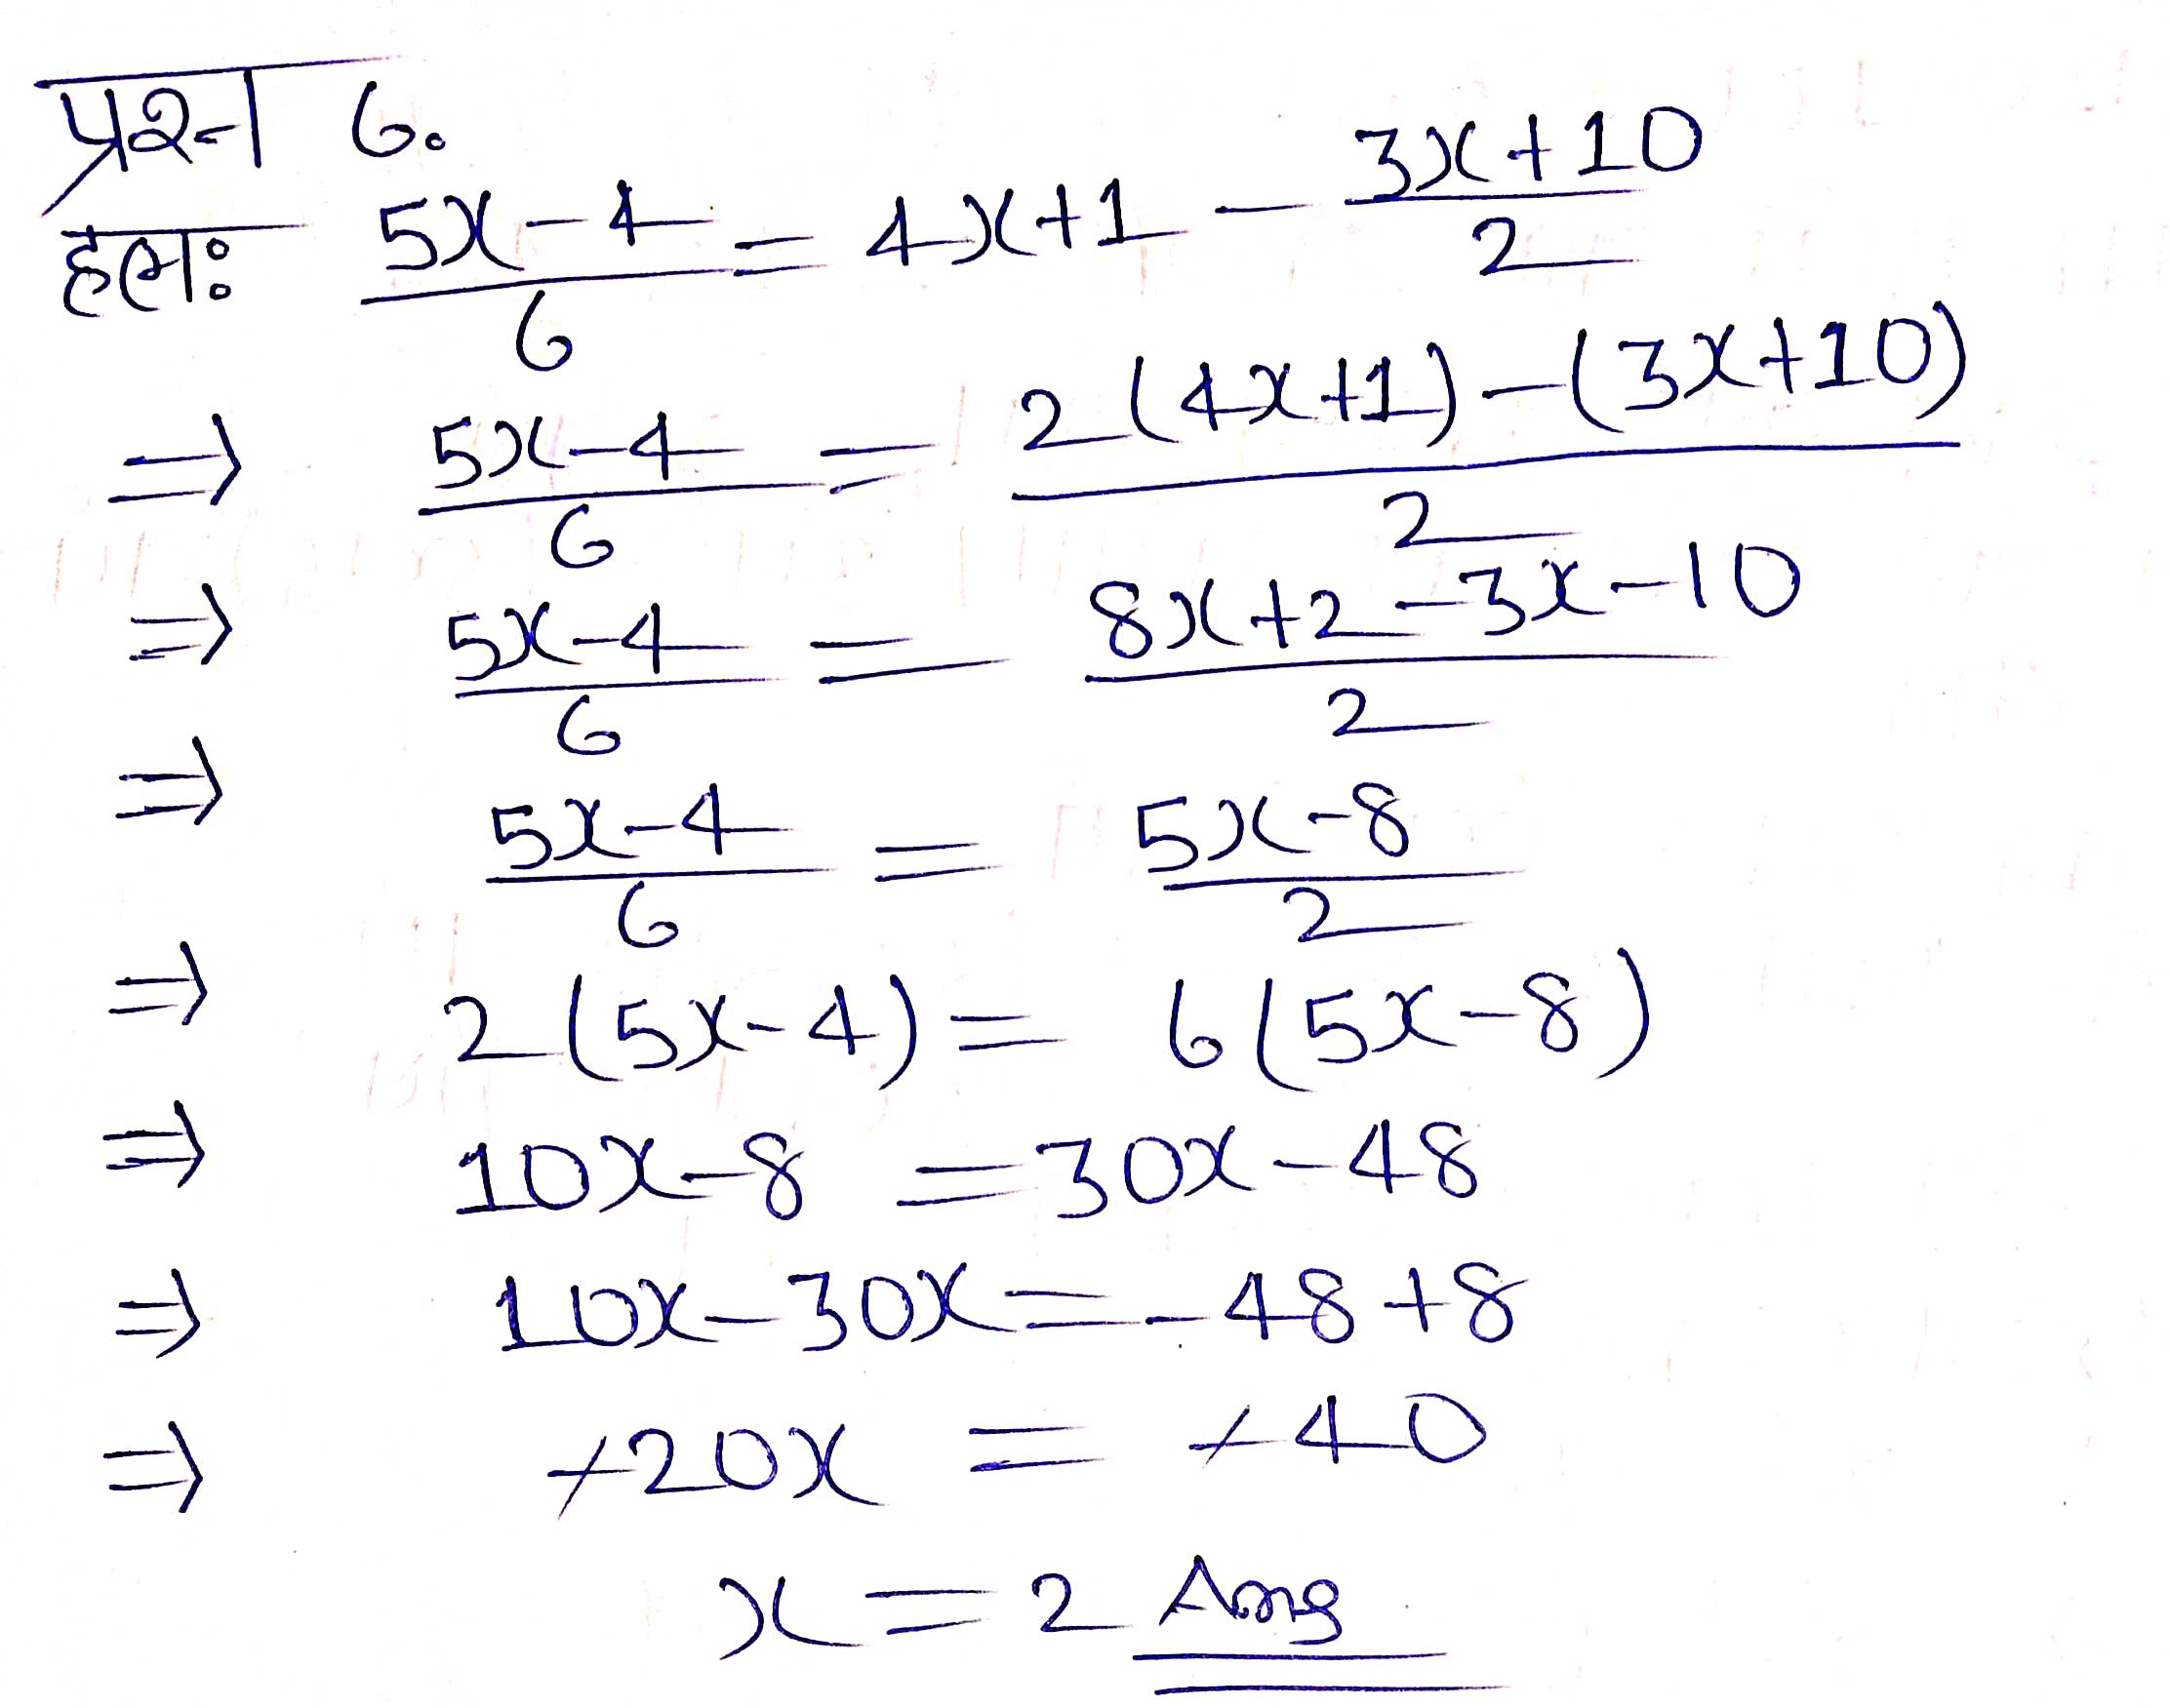 प्रश्न 6.
हलः (5x-4)/6 = 4x+1 - (3x+10)/2
⇒ (5x-4)/6 = (2(4x+1)-(3x+10))/2
⇒ (5x-4)/6 = (8x+2-3x-10)/2
⇒ (5x-4)/6 = (5x-8)/2
⇒ 2(5x-4) = 6(5x-8)
⇒ 10x-8 = 30x-48
⇒ 10x-30x = -48+8
⇒ -20x = -40
x = 2 Ans